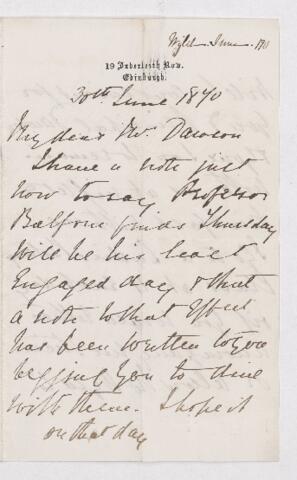 19 Inverleith Row.
Edinburgh.
30th June 1870
My dear Mr. Dawson
I have a note just
now to say Professor
Balfour finds Thursday
will be his least
Engaged day & that
a note to that effect
has been written to you
begging you to dine
with them. I hope it
on that day